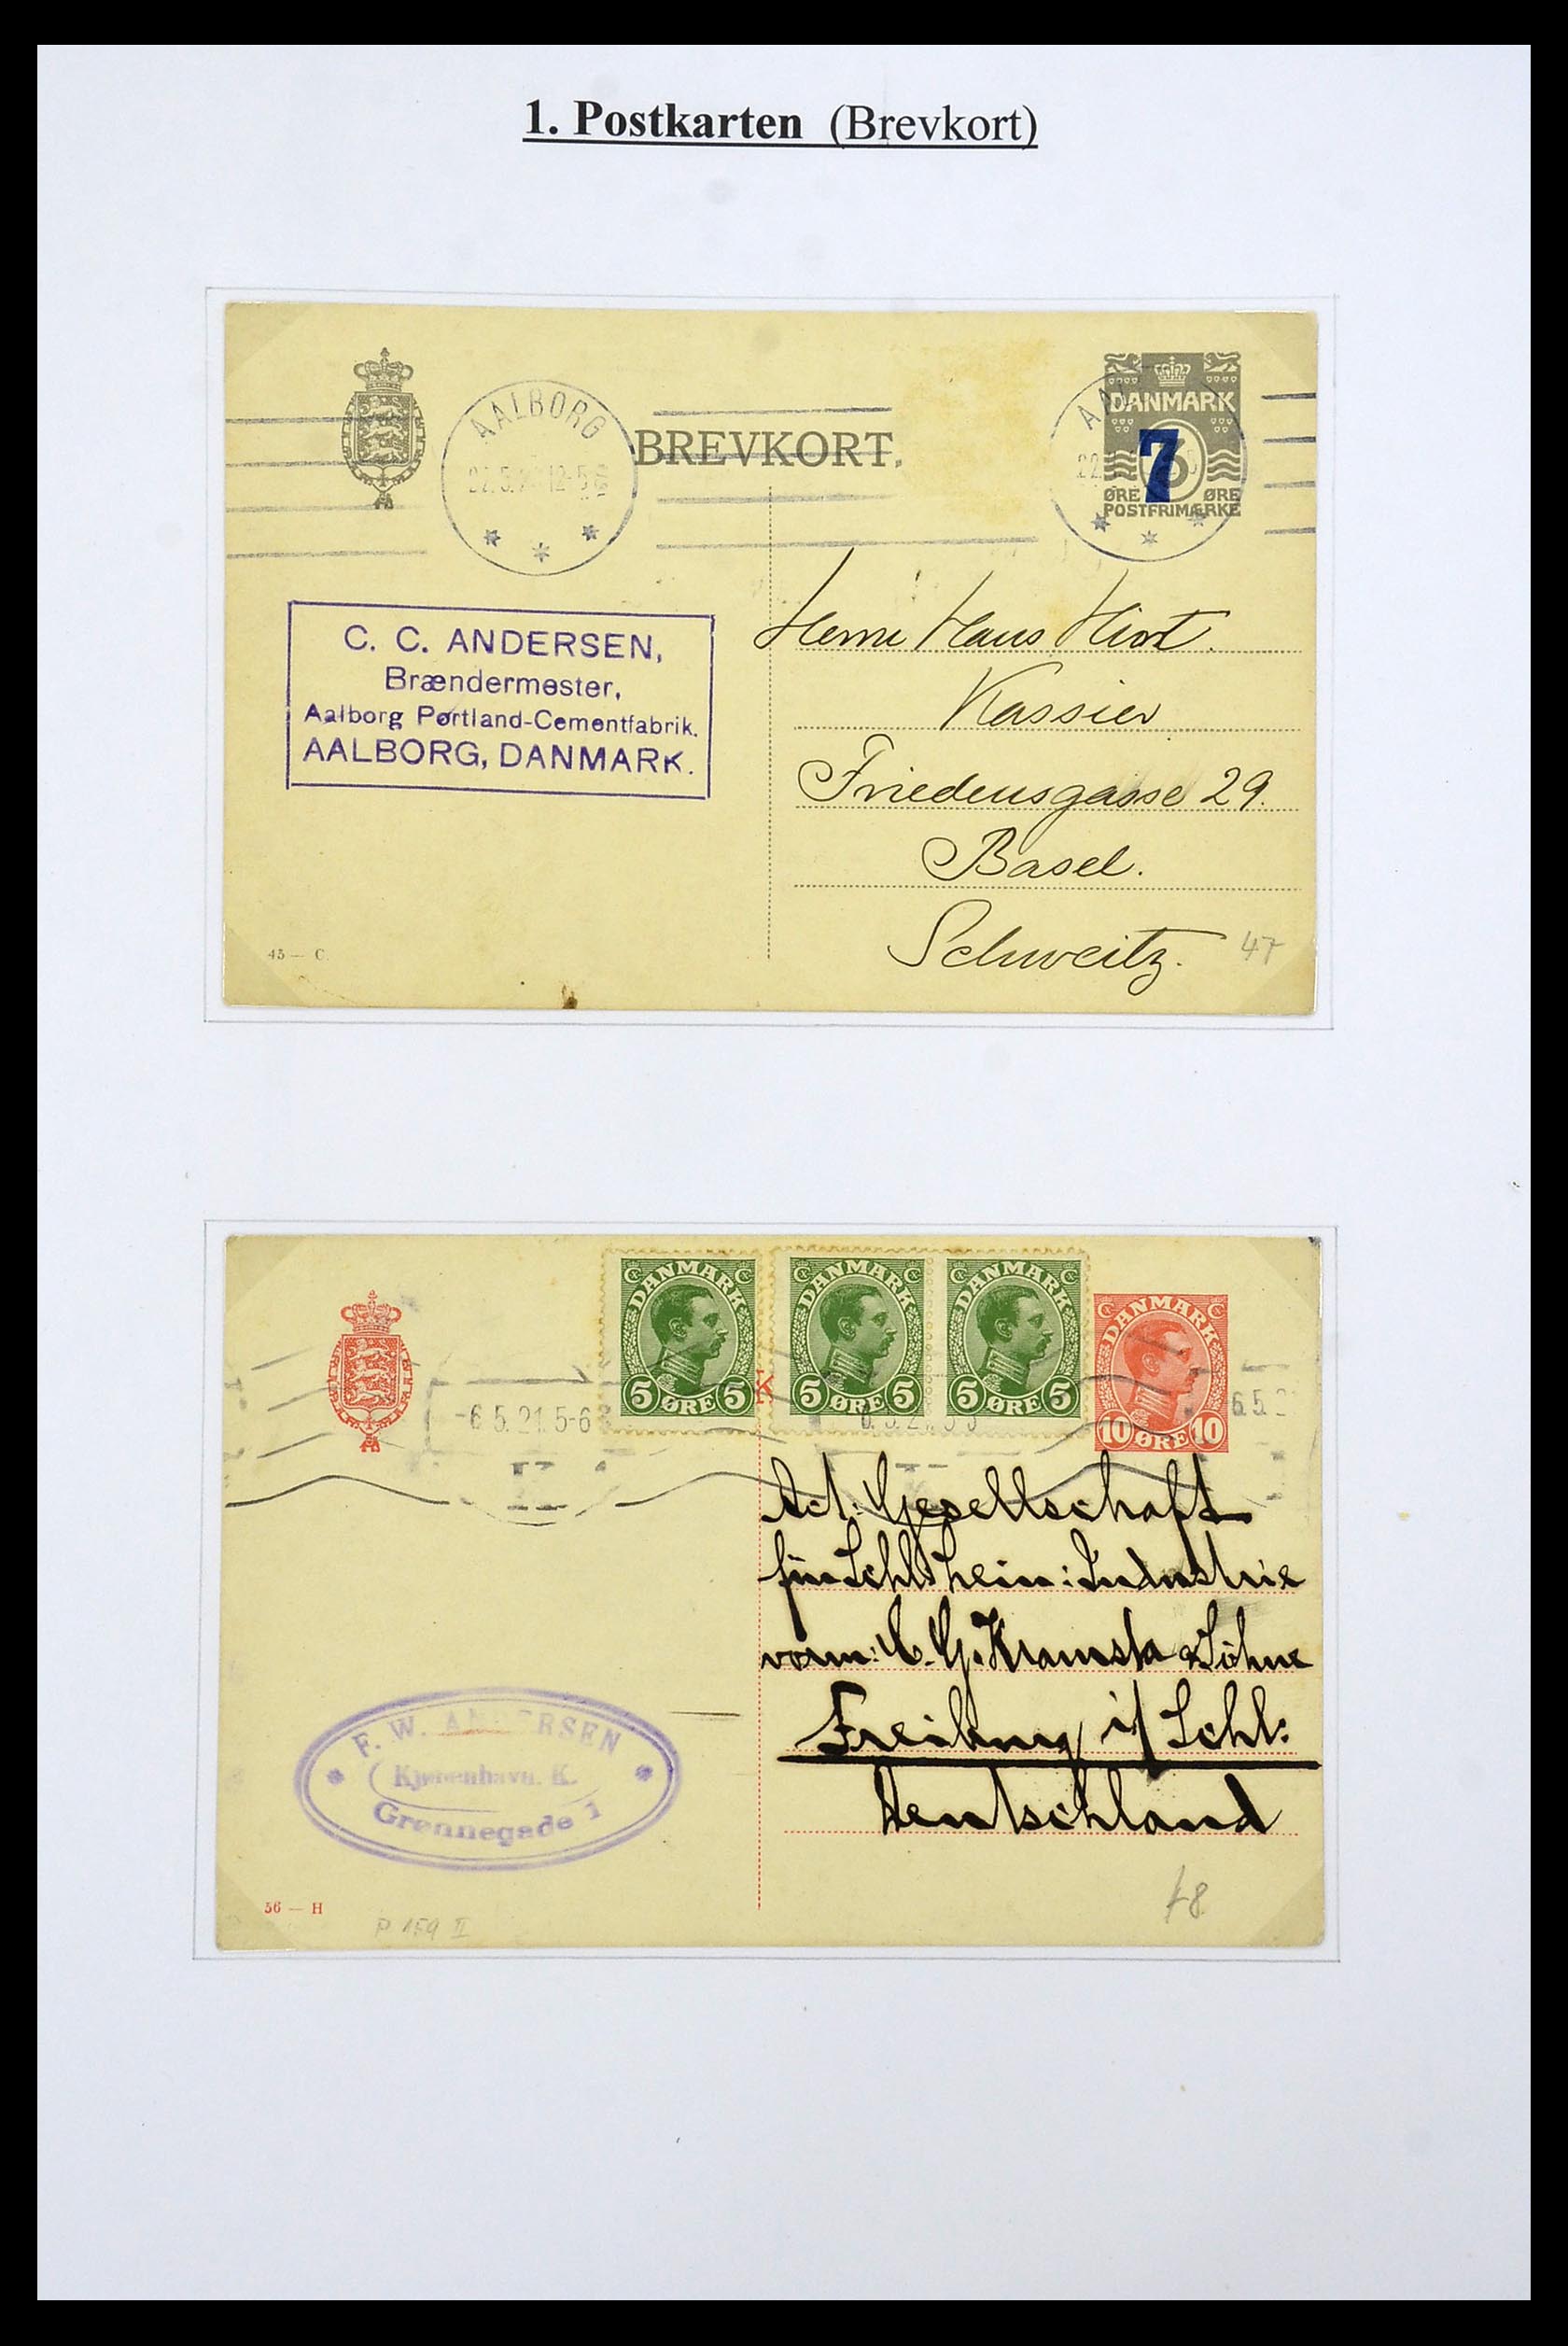 1. Postkarten (Brevkort)
AALBORG
BREVKORT.
DANMARK
7
ØRE ØRE
POSTFRIMÆRKE
C. C. ANDERSEN,
Brændermester,
Aalborg Portland-Cementfabrik.
AALBORG, DANMARK.
Herrn Hans Hirt.
Kassier
Friedensgasse 29.
Basel.
Schweitz.
47
45 — C.
DANMARK
5 ØRE 5
DANMARK
5 ØRE 5
DANMARK
5 ØRE 5
DANMARK
10 ØRE 10
K
-6.5.21.5-6
6.5.2
Act. Gesellschaft
für Schles. Lein: Industrie
vorm: C. G. Kramsta & Söhne
Freiburg i/ Schl:
Deutschland
F. W. ANDERSEN
Kjøbenhavn. K.
Grønnegade 1
56 — H
P 159 II
48